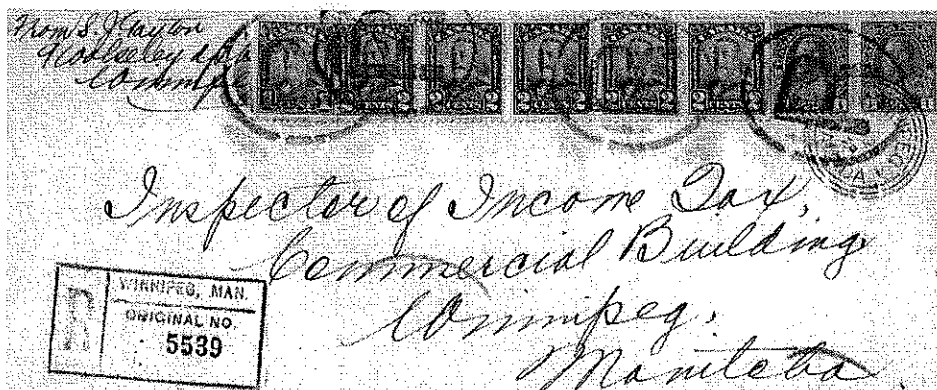 From S. J.
Wolseley
Winnipe
2 2 2 2 2 2
Inspector of Income Tax,
Commercial Building
Winnipeg.
Manitoba
R
WINNIPEG, MAN.
ORIGINAL NO.
5539